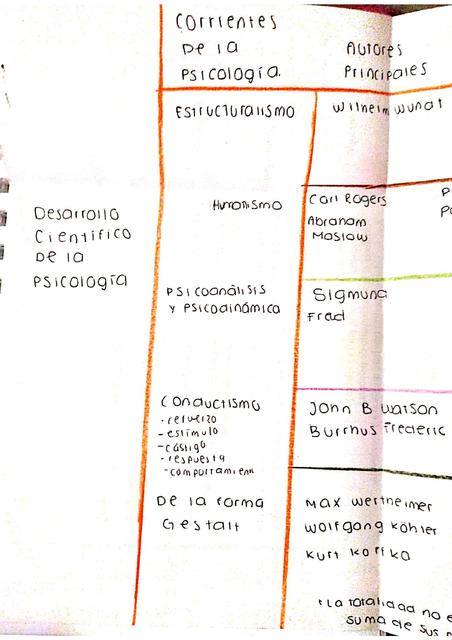 Corrientes
De la
Psicología.
Autores
Principales
Estructuralismo
Wilhelm Wundt
Humanismo
Carl Rogers
Abraham
Maslow
Desarrollo
Científico
De la
Psicología
Psicoanálisis
y Psicodinámica
Sigmund
Freud
Conductismo
- refuerzo
- estímulo
- castigo
- respuesta
- comportamien
John B Watson
Burrhus Frederic
De la forma
Gestalt
Max Wertheimer
Wolfgang Köhler
Kurt Koffka
La totalidad no e
suma de sus